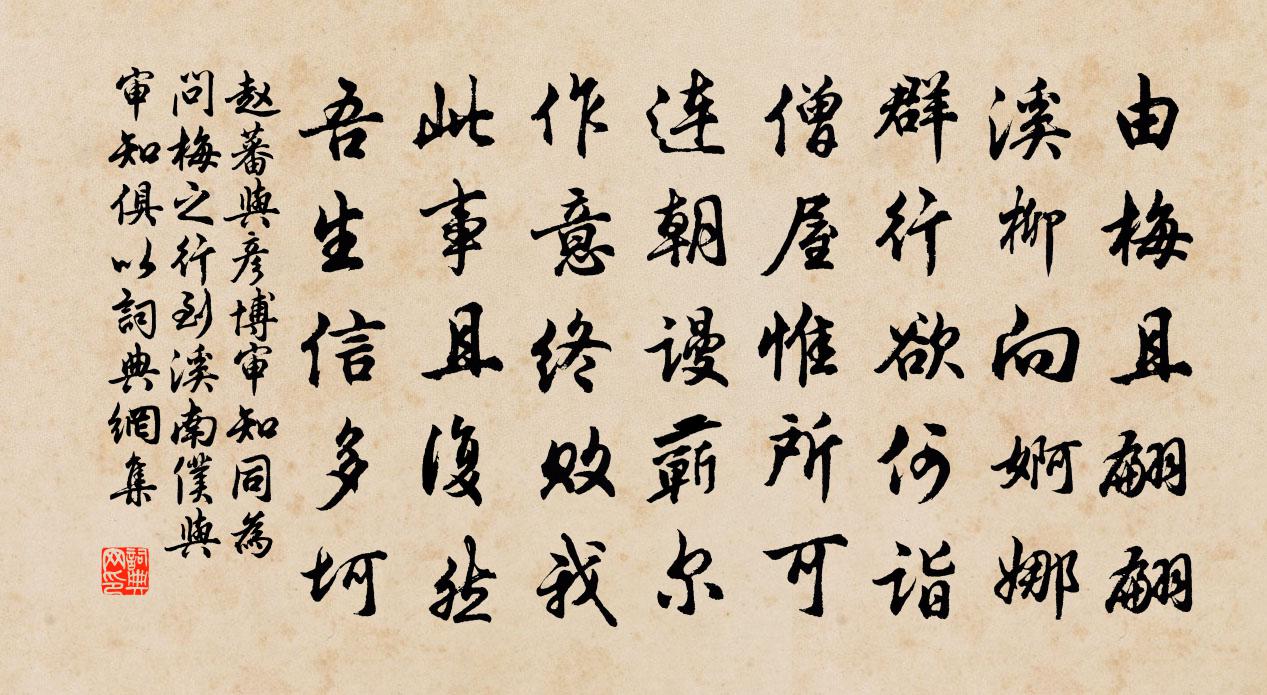 由梅且翩翩
溪柳向婀娜
群行欲何诣
僧屋惟所可
連朝謾蘄尔
作意终败我
此事且復然
吾生信多坷
赵蕃與彦博审知同為
问梅之行到溪南僕與
审知俱以詞典網集
詞典网印